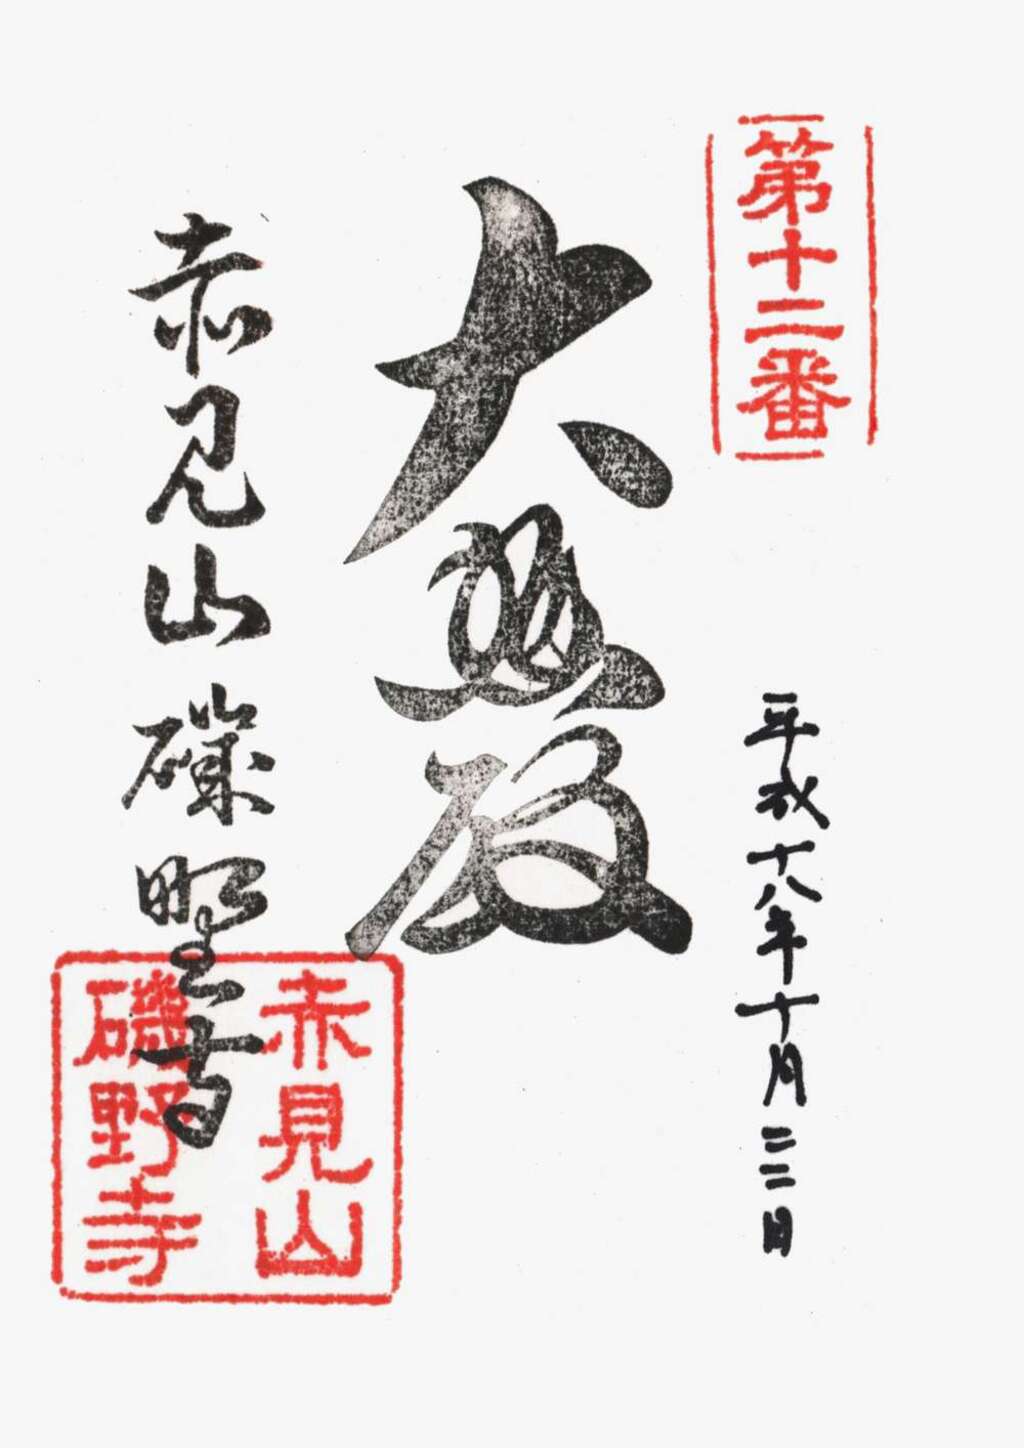 第十二番
平成十八年十月二二日
大悲殿
赤見山磯野寺
赤見山
磯野寺